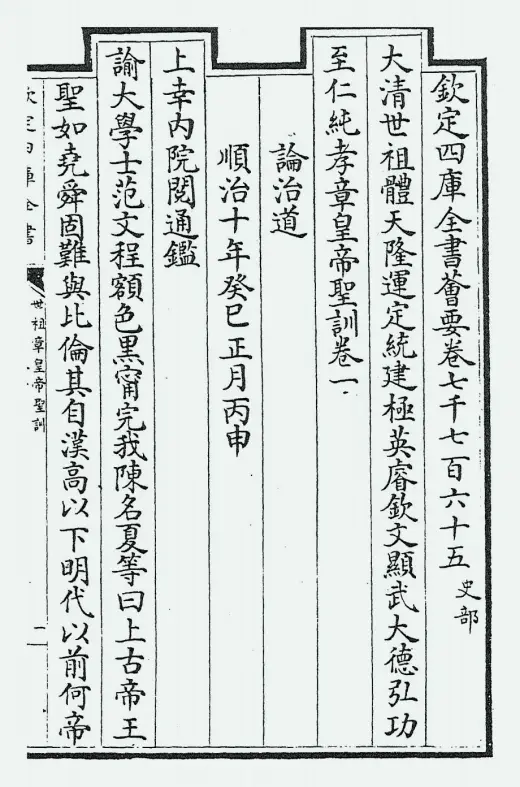 欽定四庫全書薈要卷七千七百六十五 史部
大清世祖體天隆運定統建極英睿欽文顯武大德弘功
至仁純孝章皇帝聖訓卷一
論治道
順治十年癸巳正月丙申
上幸内院閱通鑑
諭大學士范文程額色黑甯完我陳名夏等曰上古帝王
聖如堯舜固難與比倫其自漢高以下明代以前何帝
欽定四庫全書
世祖章皇帝聖訓
一